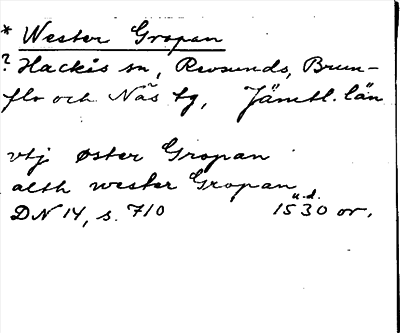 * Wester Gropan
? Hackås sn, Revsunds, Brun-
flo och Näs tg, Jämtl. län
vtj øster Gropan
alth wester Gropan
u.d.
DN 14, s. 710 1530 or.